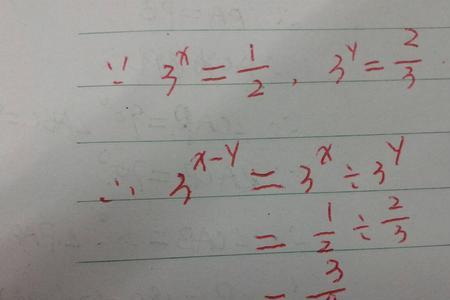 ∵ 3^x = 1/2 , 3^y = 2/3 .
∴ 3^{x-y} = 3^x ÷ 3^y
= 1/2 ÷ 2/3
= 3/